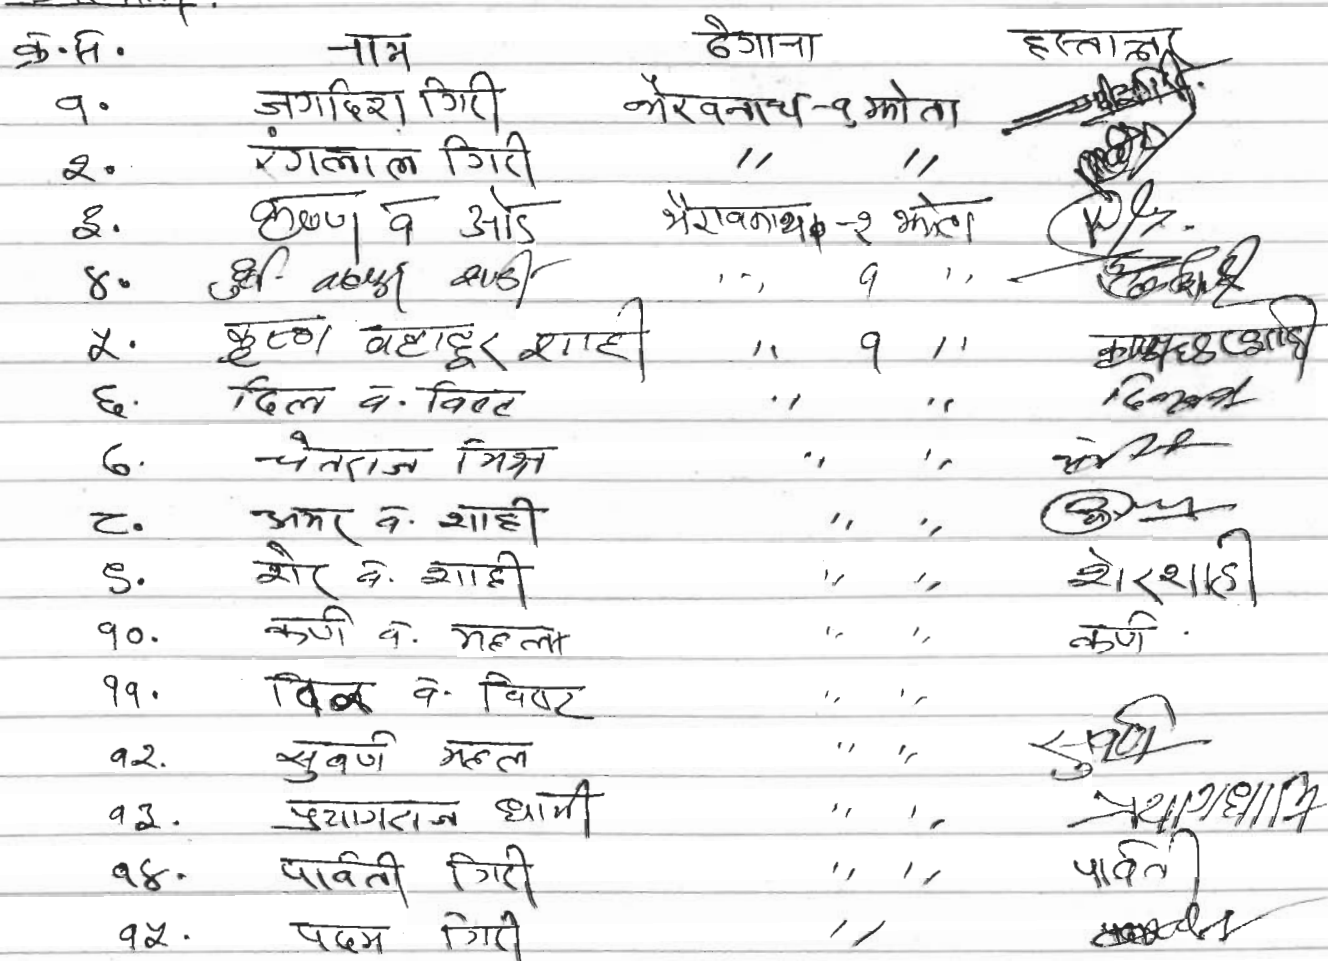 क्र.स. नाम ठेगाना हस्ताक्षर
१. जगदिश गिरी भैरवनाथ-१, झोता
२. रंगलाल गिरी " "
३. कृष्ण व ओड भैरवनाथ -१ झोता
४. " १ "
५. कृष्ण बहादुर शाही " १ "
६. दिल व. विष्ट " "
७. चेतराज मिश्र " "
८. अमर व. शाही " "
९. शेर व. शाही " " शेरशाही
१०. कर्ण व. महता " " कर्ण
११. व. विष्ट " "
१२. सुवर्ण महत " " सुवर्ण
१३. प्रयागराज धामी " "
१४. पार्वती गिरी " " पार्वती
१५. पदम गिरी "